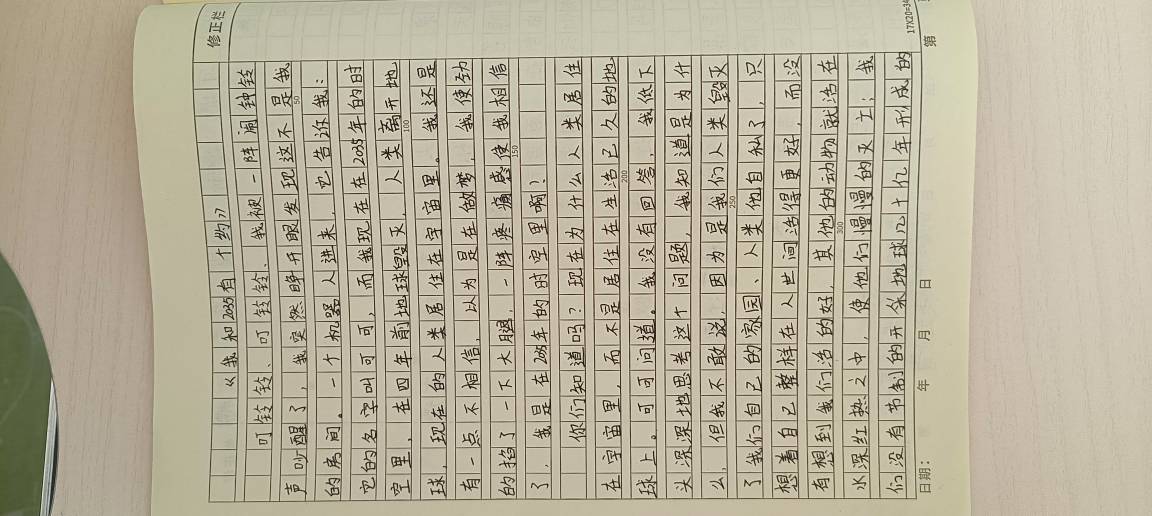 修正栏
《我和2035有个约》
叮铃铃、叮铃铃、我被一阵闹钟铃
声吵醒了，我突然睁开眼发现这不是我
50
的房间。一个机器人进来，它告诉我：
它的名字叫可可，而我现在在2035年的时
空里，在四年前地球毁灭，人类离开地
100
球，现在的人类居住在宇宙里。我还是
有一点不相信，以为是在做梦，我使劲
的掐了一下大腿，一阵疼痛感使我相信
150
了，我是在2035年的时空里啊！
你们知道吗？现在为什么人类居住
在宇宙里，而不是居住在生活已久的地
200
球上。可可问道。我没有回答，我低下
头深深地思考这个问题，我知道是为什
么，但我不敢说，因为是我们人类毁灭
250
了我们自己的家园、人类他自私了，只
想着自己整样在人世间活得更好，而没
有想到我们活的好，其他的动物就活在
300
水深红热之中，使他们慢慢的灭亡；我
们没有节制的开采地球几十亿年形成的
17X20=34
第
日期： 年 月 日